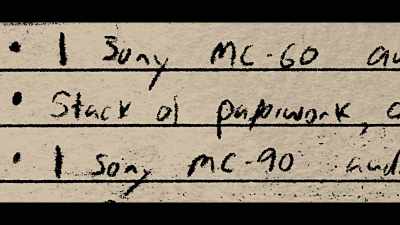 • 1 Sony MC-60 au
• Stack of paperwork,
• 1 Sony MC-90 aud